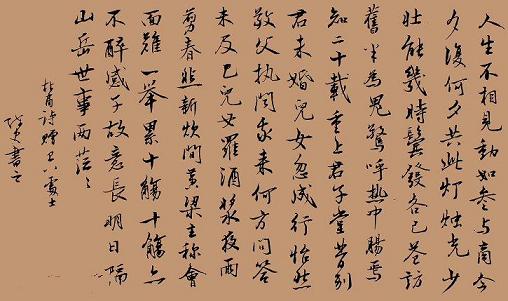 人生不相見動如參与商今
夕復何夕共此灯烛光少
壮能幾時鬓發各已苍訪
舊半为鬼驚呼热中腸焉
知二十載重上君子堂昔别
君未婚兒女忽成行怡然
敬父执問我来何方問答
未及已兒女羅酒浆夜雨
剪春韭新炊間黄粱主称會
面難一举累十觴十觴亦
不醉感子故意長明日隔
山岳世事两茫々
杜甫诗赠卫八處士
書之